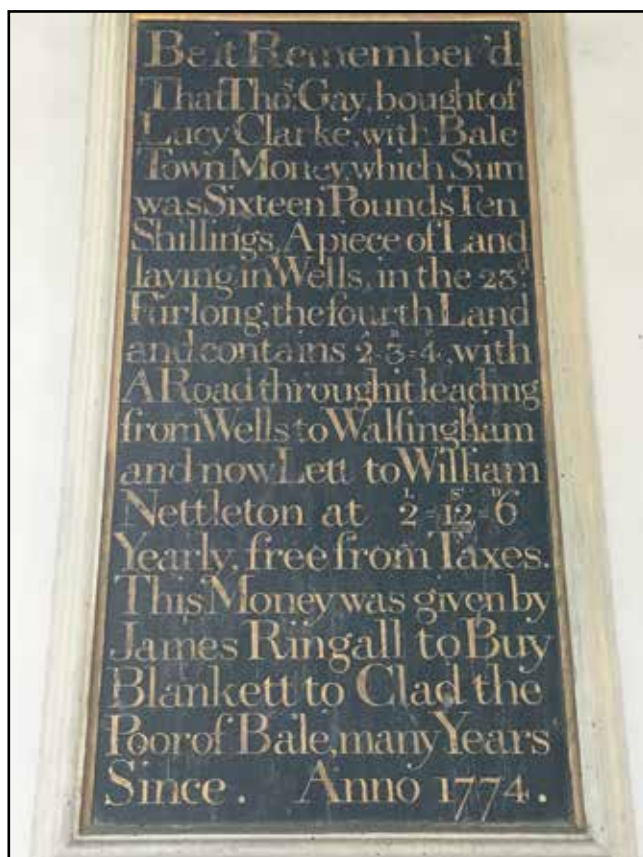 Be it Remember'd
That Thos: Gay, bought of
Lucy Clarke, with Bale
Town Money, which Sum
was Sixteen Pounds Ten
Shillings, A piece of Land
laying in Wells, in the 23d:
Furlong, the fourth Land
and contains A 2 - R 3 = P 4, with
A Road through it leading
from Wells to Walſingham
and now Lett to William
Nettleton at L 2 = S 12 = D 6
Yearly, free from Taxes.
This Money was given by
James Ringall to Buy
Blankett to Clad the
Poor of Bale, many Years
Since. Anno 1774.